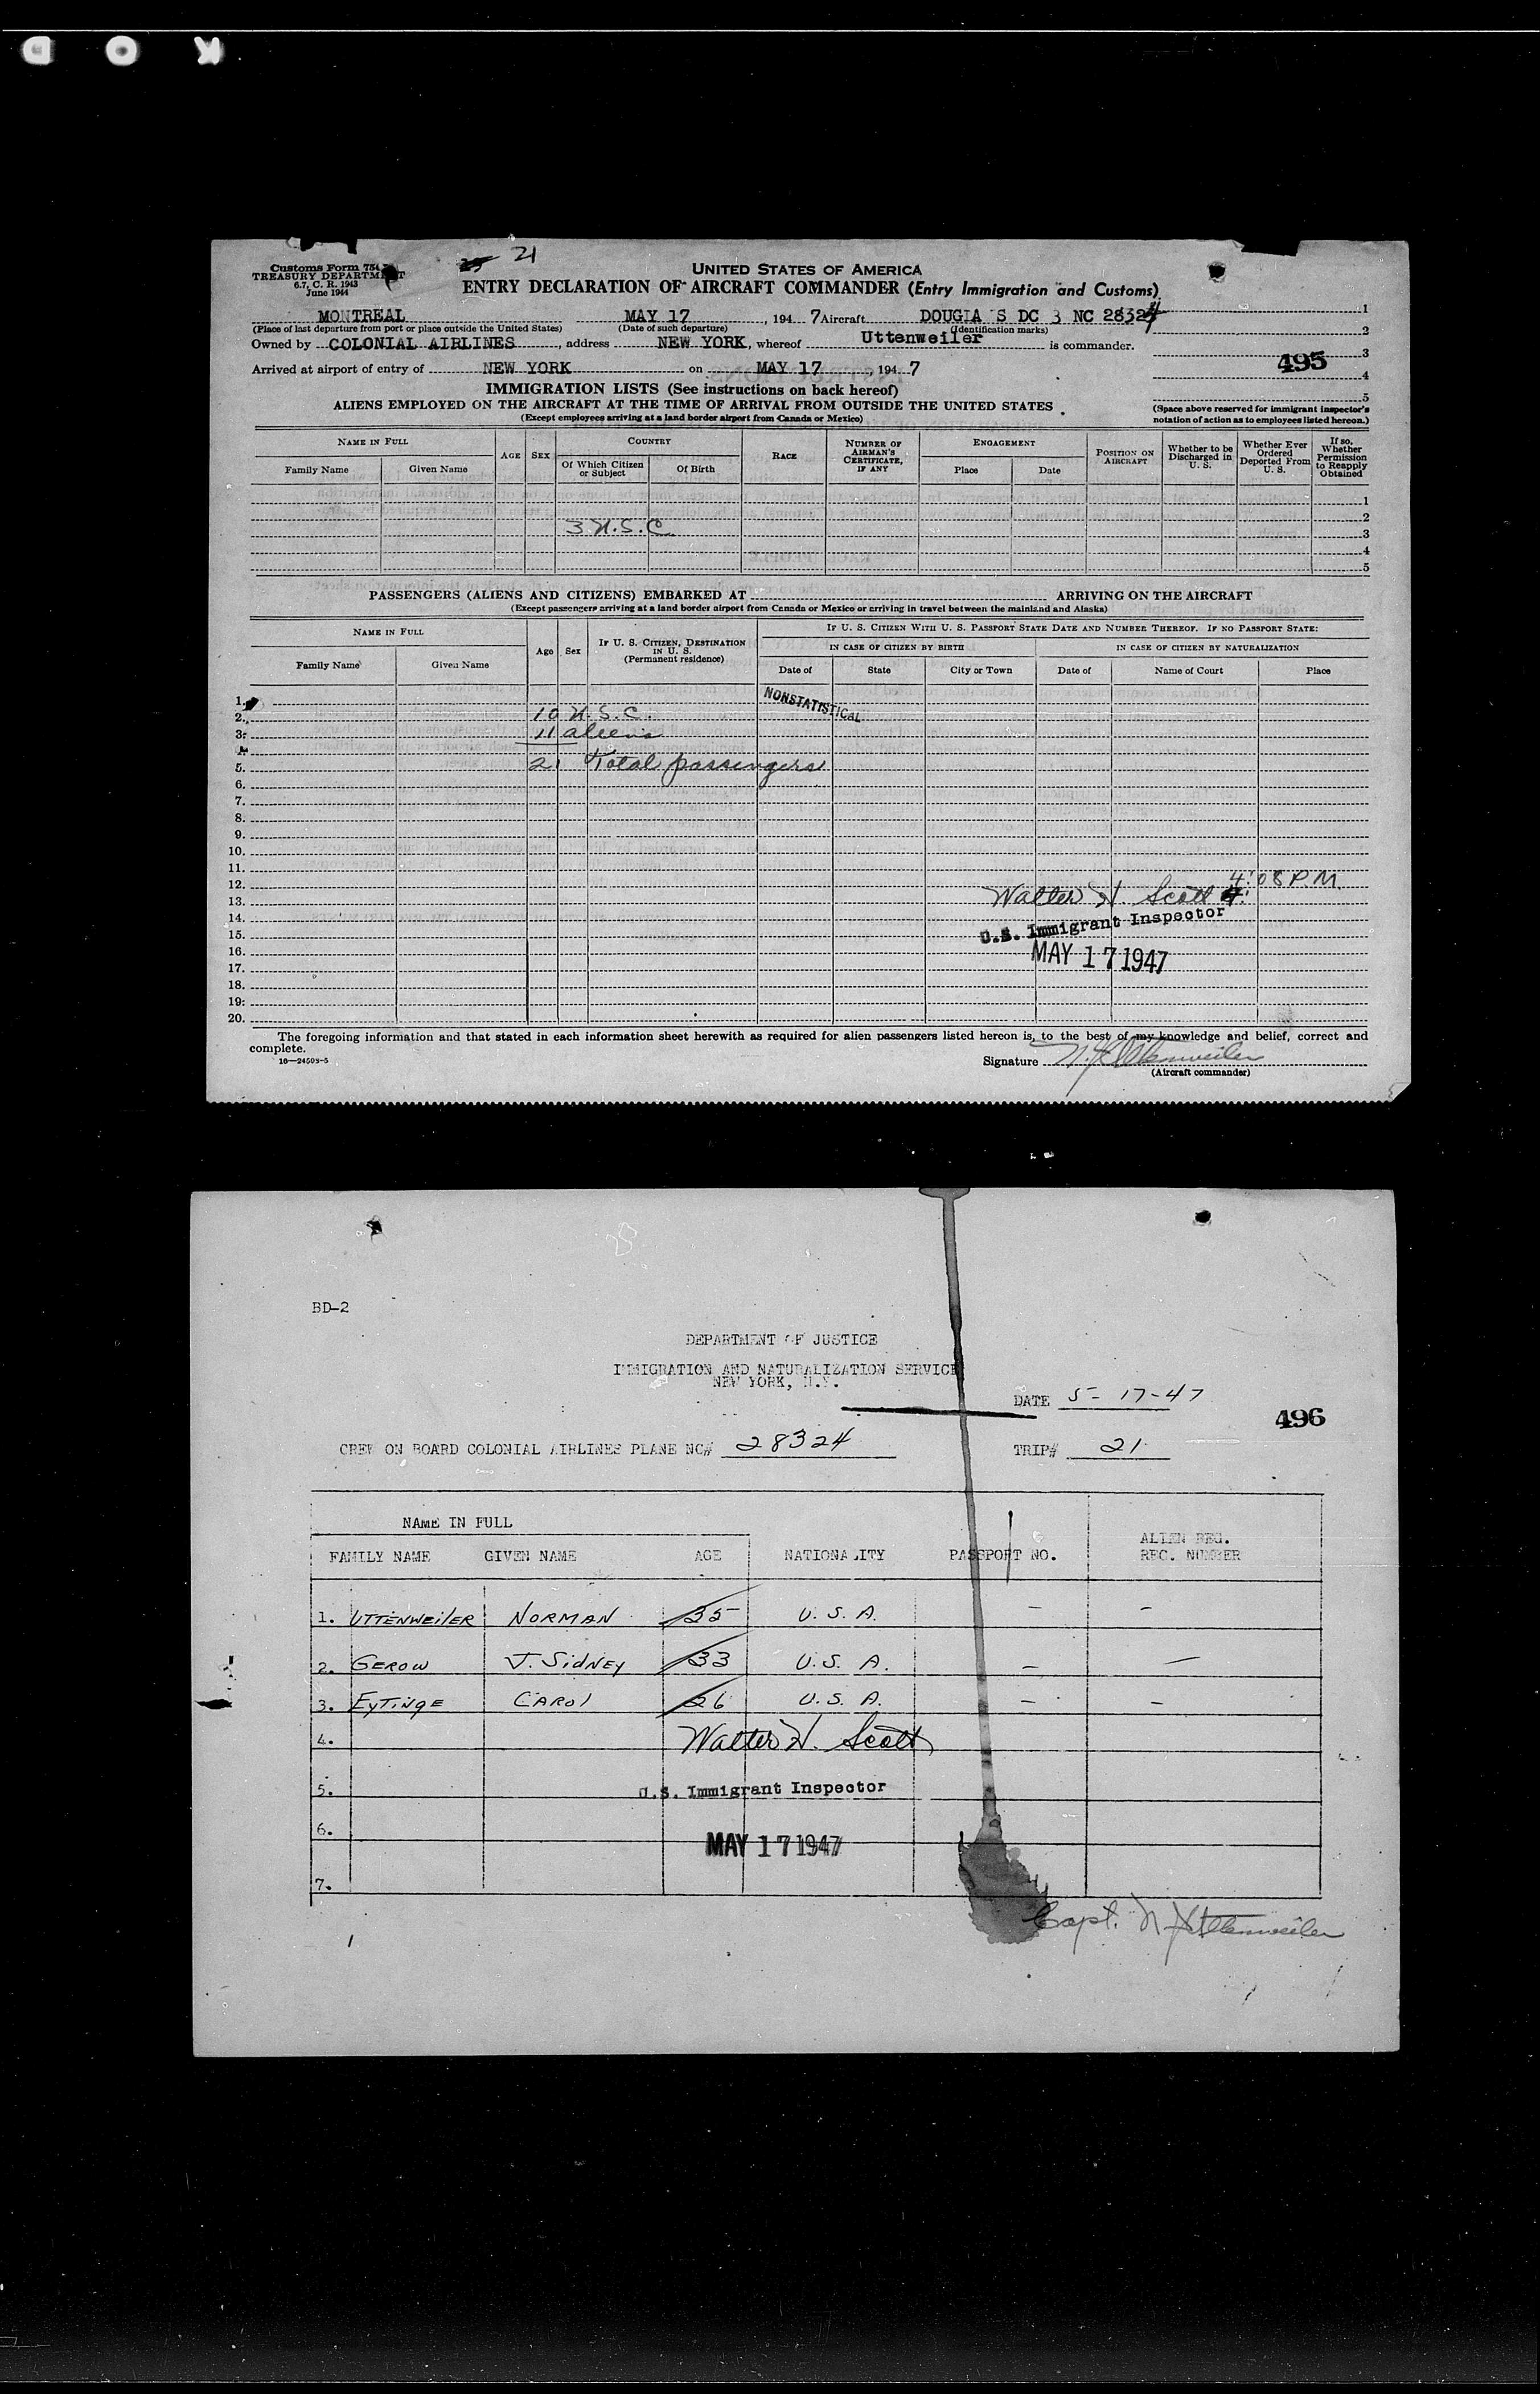 K O D
Customs Form 754
TREASURY DEPARTMENT
6.7, C. R. 1943
June 1944
21
UNITED STATES OF AMERICA
ENTRY DECLARATION OF AIRCRAFT COMMANDER (Entry Immigration and Customs)
MONTREAL MAY 17, 194 7 Aircraft DOUGLA S DC 3 NC 28324
(Place of last departure from port or place outside the United States) (Date of such departure) (Identification marks)
Owned by COLONIAL AIRLINES, address NEW YORK, whereof Uttenweiler is commander.
Arrived at airport of entry of NEW YORK on MAY 17, 194 7
1
2
3
4
5
495
(Space above reserved for immigrant inspector's notation of action as to employees listed hereon.)
IMMIGRATION LISTS (See instructions on back hereof)
ALIENS EMPLOYED ON THE AIRCRAFT AT THE TIME OF ARRIVAL FROM OUTSIDE THE UNITED STATES
(Except employees arriving at a land border airport from Canada or Mexico)
NAME IN FULL AGE SEX COUNTRY RACE NUMBER OF AIRMAN'S CERTIFICATE, IF ANY ENGAGEMENT POSITION ON AIRCRAFT Whether to be Discharged in U. S. Whether Ever Ordered Deported From U. S. If so, Whether Permission to Reapply Obtained
Family Name Given Name Of Which Citizen or Subject Of Birth Place Date
1
2
3 U.S.C.
3
4
5
PASSENGERS (ALIENS AND CITIZENS) EMBARKED AT ARRIVING ON THE AIRCRAFT
(Except passengers arriving at a land border airport from Canada or Mexico or arriving in travel between the mainland and Alaska)
NAME IN FULL Age Sex IF U. S. CITIZEN, DESTINATION IN U. S. (Permanent residence) IF U. S. CITIZEN WITH U. S. PASSPORT STATE DATE AND NUMBER THEREOF. IF NO PASSPORT STATE:
IN CASE OF CITIZEN BY BIRTH IN CASE OF CITIZEN BY NATURALIZATION
Family Name Given Name Date of State City or Town Date of Name of Court Place
1. NONSTATISTICAL
2. 10 U.S.C.
3. 11 aliens
4.
5. 21 Total passengers
6.
7.
8.
9.
10.
11.
12. 4:08 P.M.
13. Walter H. Scott
14. U.S. Immigrant Inspector
15.
16. MAY 17 1947
17.
18.
19.
20.
The foregoing information and that stated in each information sheet herewith as required for alien passengers listed hereon is, to the best of my knowledge and belief, correct and
complete.
16—24503-5
Signature N. Uttenweiler
(Aircraft commander)
BD-2
DEPARTMENT OF JUSTICE
IMMIGRATION AND NATURALIZATION SERVICE
NEW YORK, N.Y.
DATE 5-17-47
496
CREW ON BOARD COLONIAL AIRLINES PLANE NC# 28324 TRIP# 21
NAME IN FULL
FAMILY NAME GIVEN NAME AGE NATIONALITY PASSPORT NO. ALIEN REG. REC. NUMBER
1. UTTENWEILER NORMAN 35 U.S.A. — —
2. GEROW J. SIDNEY 33 U.S.A. — —
3. EYTINGE CAROL 26 U.S.A. — —
4. Walter H. Scott
5. U.S. Immigrant Inspector
6. MAY 17 1947
7.
Capt. N. Uttenweiler